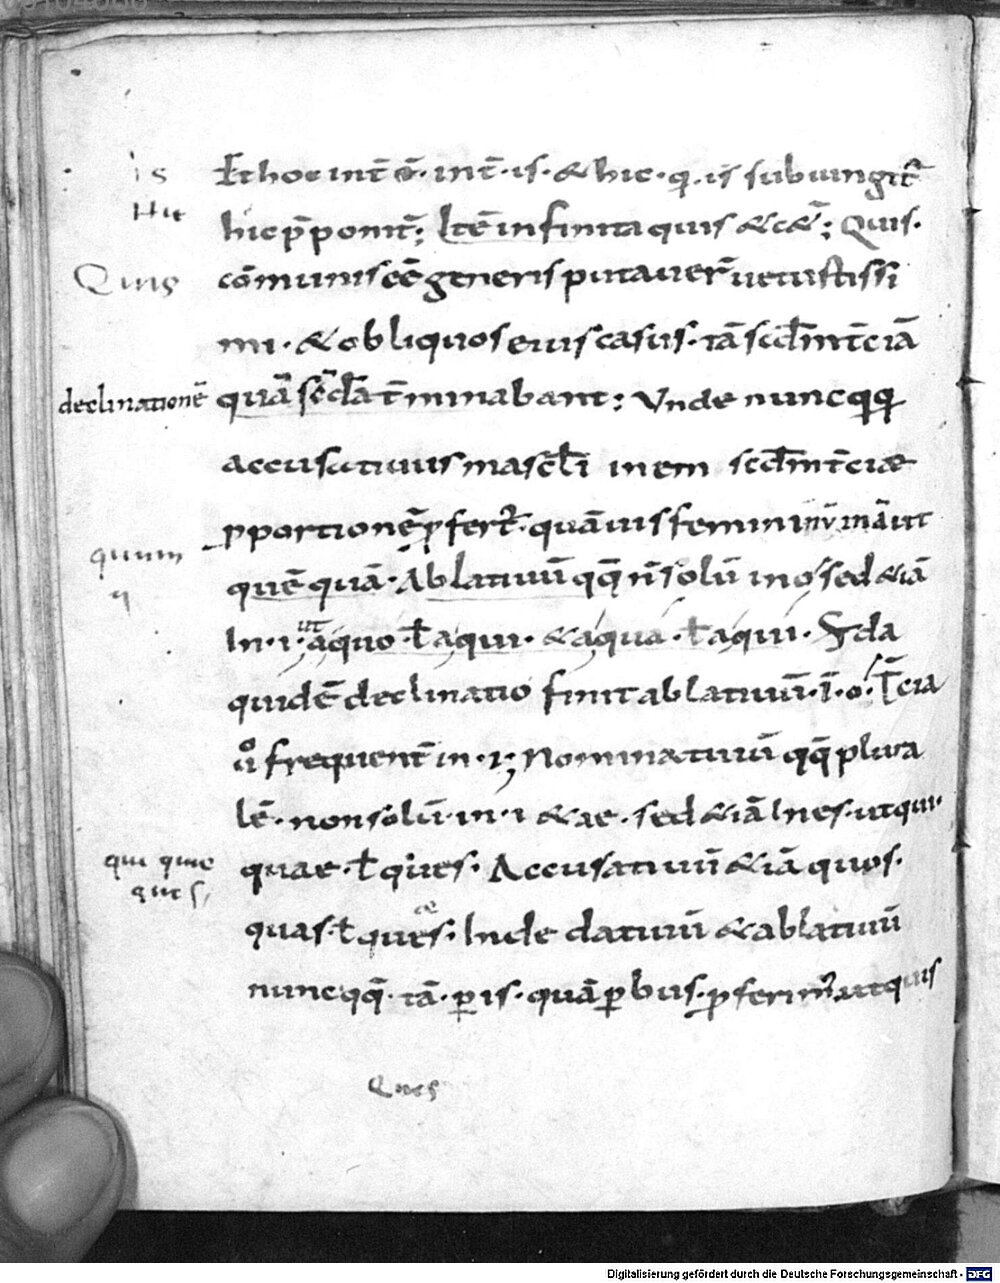 is
Hic
Et hoc int̄ ē. int̄. is. & hic. q̄. is subiungit᷑
hic p̄ponit᷑; Itē infinita quis & c&᷑; Quis.
Quis
cōmunis eē generis putauer̄ uetustissi
mi. & obliquos eius casus. tā scd̄m t̄ciā
declinationē
quā scd̄ā t̄minabant; Vnde nunc qq̄
accusatiuus mascł̄i in em scd̄m t̄ciae
pportionē p̄fert᷑. quāuis feminini nū in ā ut
quum
quē quā. Ablatiuū qq̄ n̄ solū in o sed &iā
In. i. ut áquo. ł áqui. & áqua. ł áqui. Scd̄a
quidē declinatio finit ablatiuū. ī. o. T̄cia
ů frequent̄ in. i; Nominatiuū qq̄ plura
lē. non solū. in. i & ae. sed &iā In es. ut qui.
qui quae
ques
quae. ł ques. Accusatiuū &iā quos.
quas. ł ques. Inde datiuū & ablatiuū
nunc qq̄. tā. p̱ is. quā p̱ bus. p̄ferim᷒. ut quis
Ques
Digitalisierung gefördert durch die Deutsche Forschungsgemeinschaft - DFG